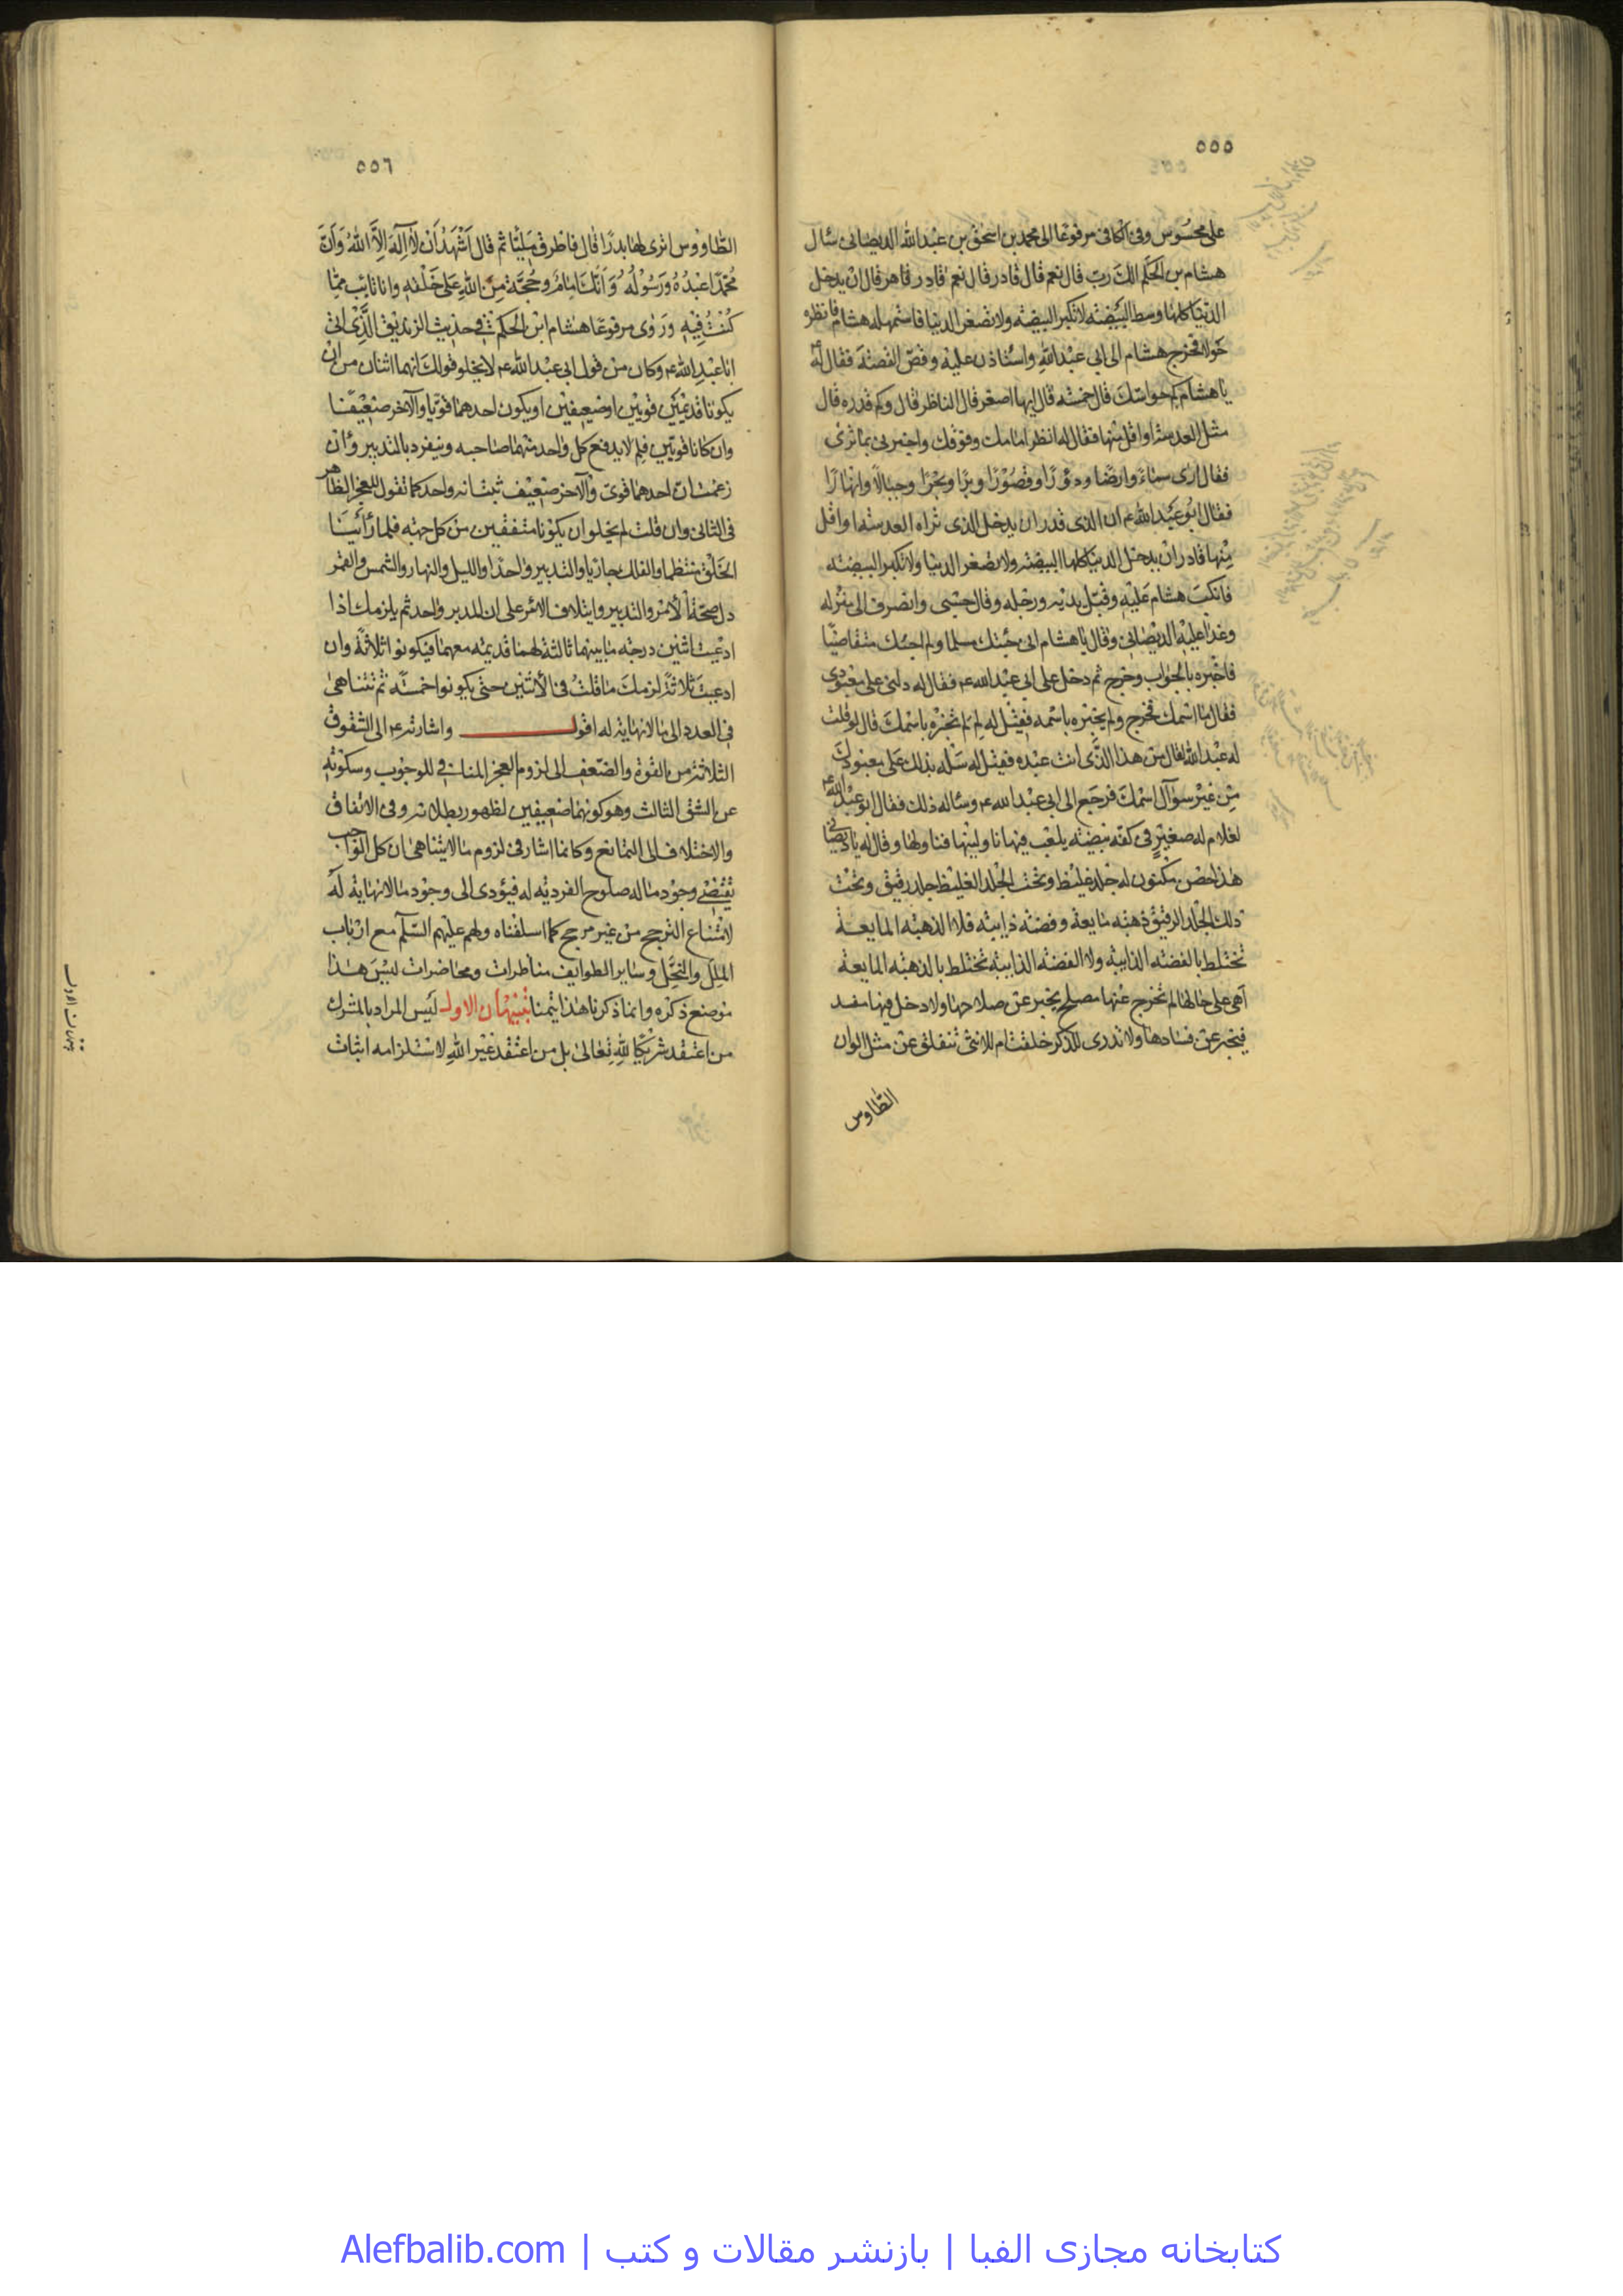 ٥٥٥
على محسوس وفى الكافى مرفوعا الى محمد بن اسحق بن عبد الله الديصانى سئال
هشام بن الحكم الك رب قال نعم قال قادر قال نعم قادر قاهر قال ان يدخل
الدنيا كلها وسط البيضة لا تكبر البيضة ولا تصغر الدنيا فاستمهله هشام فانظره
حولا فخرج هشام الى ابى عبد الله واستاذن عليه وقص القصة فقال له
يا هشام كم حواسك قال خمسة قال ايها اصغر قال الناظر قال وكم قدره قال
مثل العدسة او اقل منها فقال له انظر امامك وفوقك واخبرنى بما ترى
فقال ارى سماء وارضا ودورا وقصورا وبرا وبحرا وجبالا وانهارا
فقال ابو عبد الله ع ان الذى قدر ان يدخل الذى تراه العدسة او اقل
منها قادر ان يدخل الدنيا كلها البيضة ولا تصغر الدنيا ولا تكبر البيضة
فانكب هشام عليه وقبل يديه ورجله وقال حسبى وانصرف الى منزله
وغدا عليه الديصانى وقال يا هشام انى جئتك مسلما ولم اجئك متقاضيا
فاخبره بالجواب وخرج ثم دخل على ابى عبد الله ع فقال له دلنى على معبودى
فقال ما اسمك فخرج ولم يخبره باسمه فقيل له لم لم تخبره باسمك قال لو قلت
له عبد الله لقال من هذا الذى انت عبده فقيل له سله يذلك على معبودك
من غير سوآل اسمك فرجع الى ابى عبد الله ع وساله ذلك فقال ابو عبد الله ع
لغلام له صغير فى كفه بيضة يلعب فيها ناولينها فناولها وقال له يا ديصانى
هذا حصن مكنون له جلد غليظ وتحت الجلد الغليظ جلد رقيق وتحت
ذلك الجلد الرقيق ذهبة مايعة وفضة ذايبة فلا الذهبة المايعة
تختلط بالفضة الذايبة ولا الفضة الذايبة تختلط بالذهبة المايعة
اهى على حالها لم تخرج عنها مصلح يخبر عن صلاحها ولا دخل فيها مفسد
فيخبر عن فسادها ولا تدرى للذكر خلقت ام للانثى تنفلق عن مثل الوان
الطاوس
٥٥٦
الطاووس اترى لها بدرا قال فاطرق مليا ثم قال اشهد ان لا اله الا الله وان
محمدا عبده ورسوله وانك امام وحجة من الله على خلقه وانا تائب مما
كنت فيه وروى مرفوعا هشام ابن الحكم فى حديث الزنديق الذى اتى
ابا عبد الله ع وكان من قول ابى عبد الله ع لا يخلو قولك انهما اثنان من ان
يكونا قديمين قويين او ضعيفين او يكون احدهما قويا والآخر ضعيفا
وان كانا قويين فلم لا يدفع كل واحد منهما صاحبه وينفرد بالتدبير وان
زعمت ان احدهما قوى والآخر ضعيف ثبت انه واحد كما نقول للعجز الظاهر
فى الثانى وان قلت لم يخلو ان يكونا متفقين من كل جهة فلما راينا
الخلق منتظما والفلك جاريا والتدبير واحدا والليل والنهار والشمس والقمر
دل صحة الامر والتدبير وايتلاف الامر على ان المدبر واحد ثم يلزمك اذا
ادعيت اثنين درجة ما بينهما ثالثة لهما قديمة معهما فيكونوا ثلاثة وان
ادعيت ثلاثة لزمك ما قلت فى الاثنين حتى يكونوا خمسة ثم تتناهى
فى العدد الى ما لا نهاية له اقول واشارته ع الى الشقوق
الثلاثة من القوة والضعف الى لزوم العجز المنافى للوجوب وسكوته
عن الشق الثالث وهو كونهما ضعيفين لظهور بطلانه وفى الاتفاق
والاختلاف الى التمانع وكانما اشار فى لزوم ما لا يتناهى ان كل الواجب
يقتضى وجود ماله صلوح الفردية له فيؤدى الى وجود ما لا نهاية له
لامتناع الترجح من غير مرجح كما اسلفناه ولهم عليهم السلم مع ارباب
الملل والنحل وساير الطوايف مناظرات ومحاضرات ليس هذا
موضع ذكره وانما ذكرنا هذا تيمنا تنبيهان الاول ليس المراد بالمشرك
من اعتقد شريكا لله تعالى بل من اعتقد غير الله لاستلزامه اثبات
کتابخانه مجازی الفبا | بازنشر مقالات و کتب | Alefbalib.com